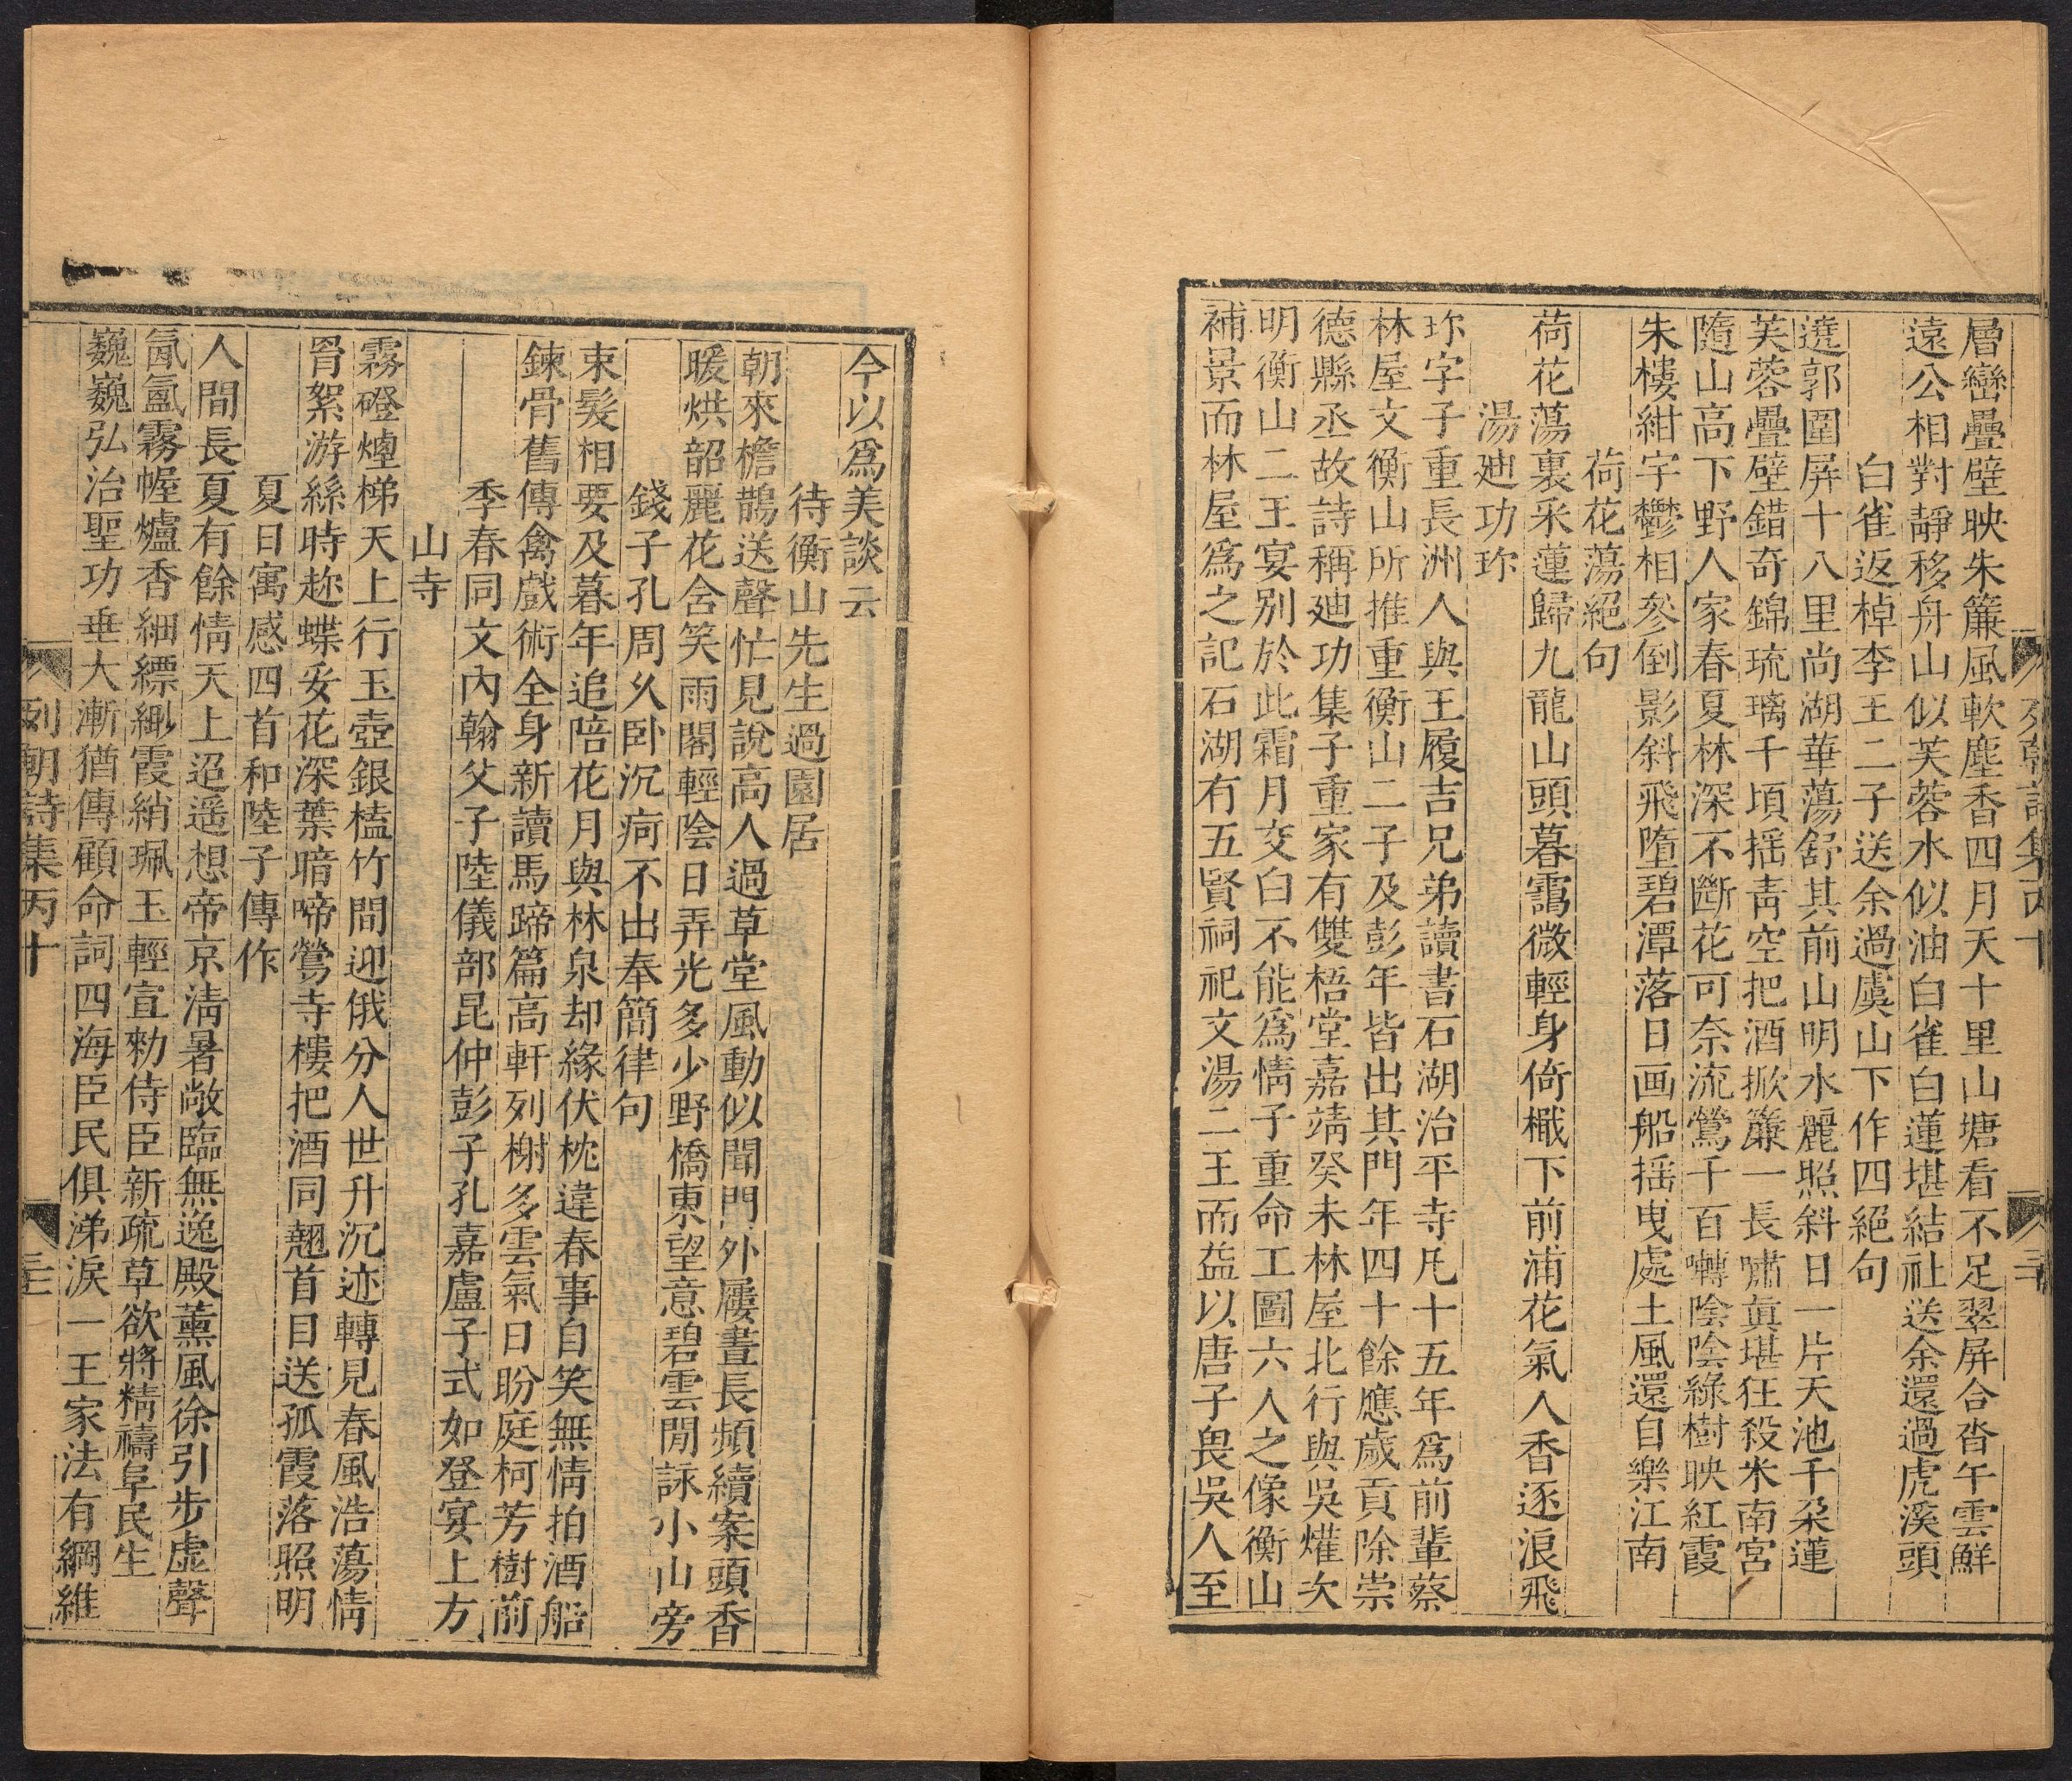 層巒疊壁映朱簾風軟塵香四月天十里山塘看不足翠屏合沓午雲鮮
遠公相對靜移舟山似芙蓉水似油白雀白蓮堪結社送余還過虎溪頭
白雀返棹李王二子送余過虞山下作四絕句
遶郭圍屏十八里尚湖華蕩舒其前山明水麗照斜日一片天池千朶蓮
芙蓉疊壁錯奇錦琉璃千頃揺靑空把酒掀簾一長嘯眞堪狂殺米南宮
隨山高下野人家春夏林深不斷花可奈流鶯千百囀陰陰綠樹映紅霞
朱樓紺宇鬱相參倒影斜飛墮碧潭落日画船揺曳處土風還自樂江南
荷花蕩絕句
荷花蕩裏采蓮歸九龍山頭暮靄微輕身倚檝下前浦花氣人香逐浪飛
湯廸功珎
珎字子重長洲人與王履吉兄弟讀書石湖治平寺凡十五年爲前輩蔡
林屋文衡山所推重衡山二子及彭年皆出其門年四十餘應歲貢除崇
德縣丞故詩稱廸功集子重家有雙梧堂嘉靖癸未林屋北行與吳爟次
明衡山二王宴別於此霜月交白不能爲情子重命工圖六人之像衡山
補景而林屋爲之記石湖有五賢祠祀文湯二王而益以唐子畏吳人至
列朝詩集丙十
今以爲美談云
待衡山先生過園居
朝來檐鵲送聲忙見說高人過草堂風動似聞門外屨晝長頻續案頭香
暖烘韶麗花含笑雨閣輕陰日弄光多少野橋東望意碧雲閒詠小山旁
錢子孔周久卧沉疴不出奉簡律句
束髮相要及暮年追陪花月與林泉却緣伏枕違春事自笑無情拍酒船
鍊骨舊傳禽戲術全身新讀馬蹄篇高軒列榭多雲氣日盼庭柯芳樹前
季春同文內翰父子陸儀部昆仲彭子孔嘉盧子式如登宴上方
山寺
霧磴煙梯天上行玉壺銀榼竹間迎俄分人世升沉迹轉見春風浩蕩情
罥絮游絲時趂蝶妥花深葉暗啼鶯寺樓把酒同翹首目送孤霞落照明
夏日寓感四首和陸子傳作
人間長夏有餘情天上迢遥想帝京淸暑敞臨無逸殿薰風徐引步虛聲
氤氳霧幄爐香細縹緲霞綃珮玉輕宣勑侍臣新疏草欲將精禱阜民生
巍巍弘治聖功垂大漸猶傳顧命詞四海臣民俱涕淚一王家法有綱維
列朝詩集丙十